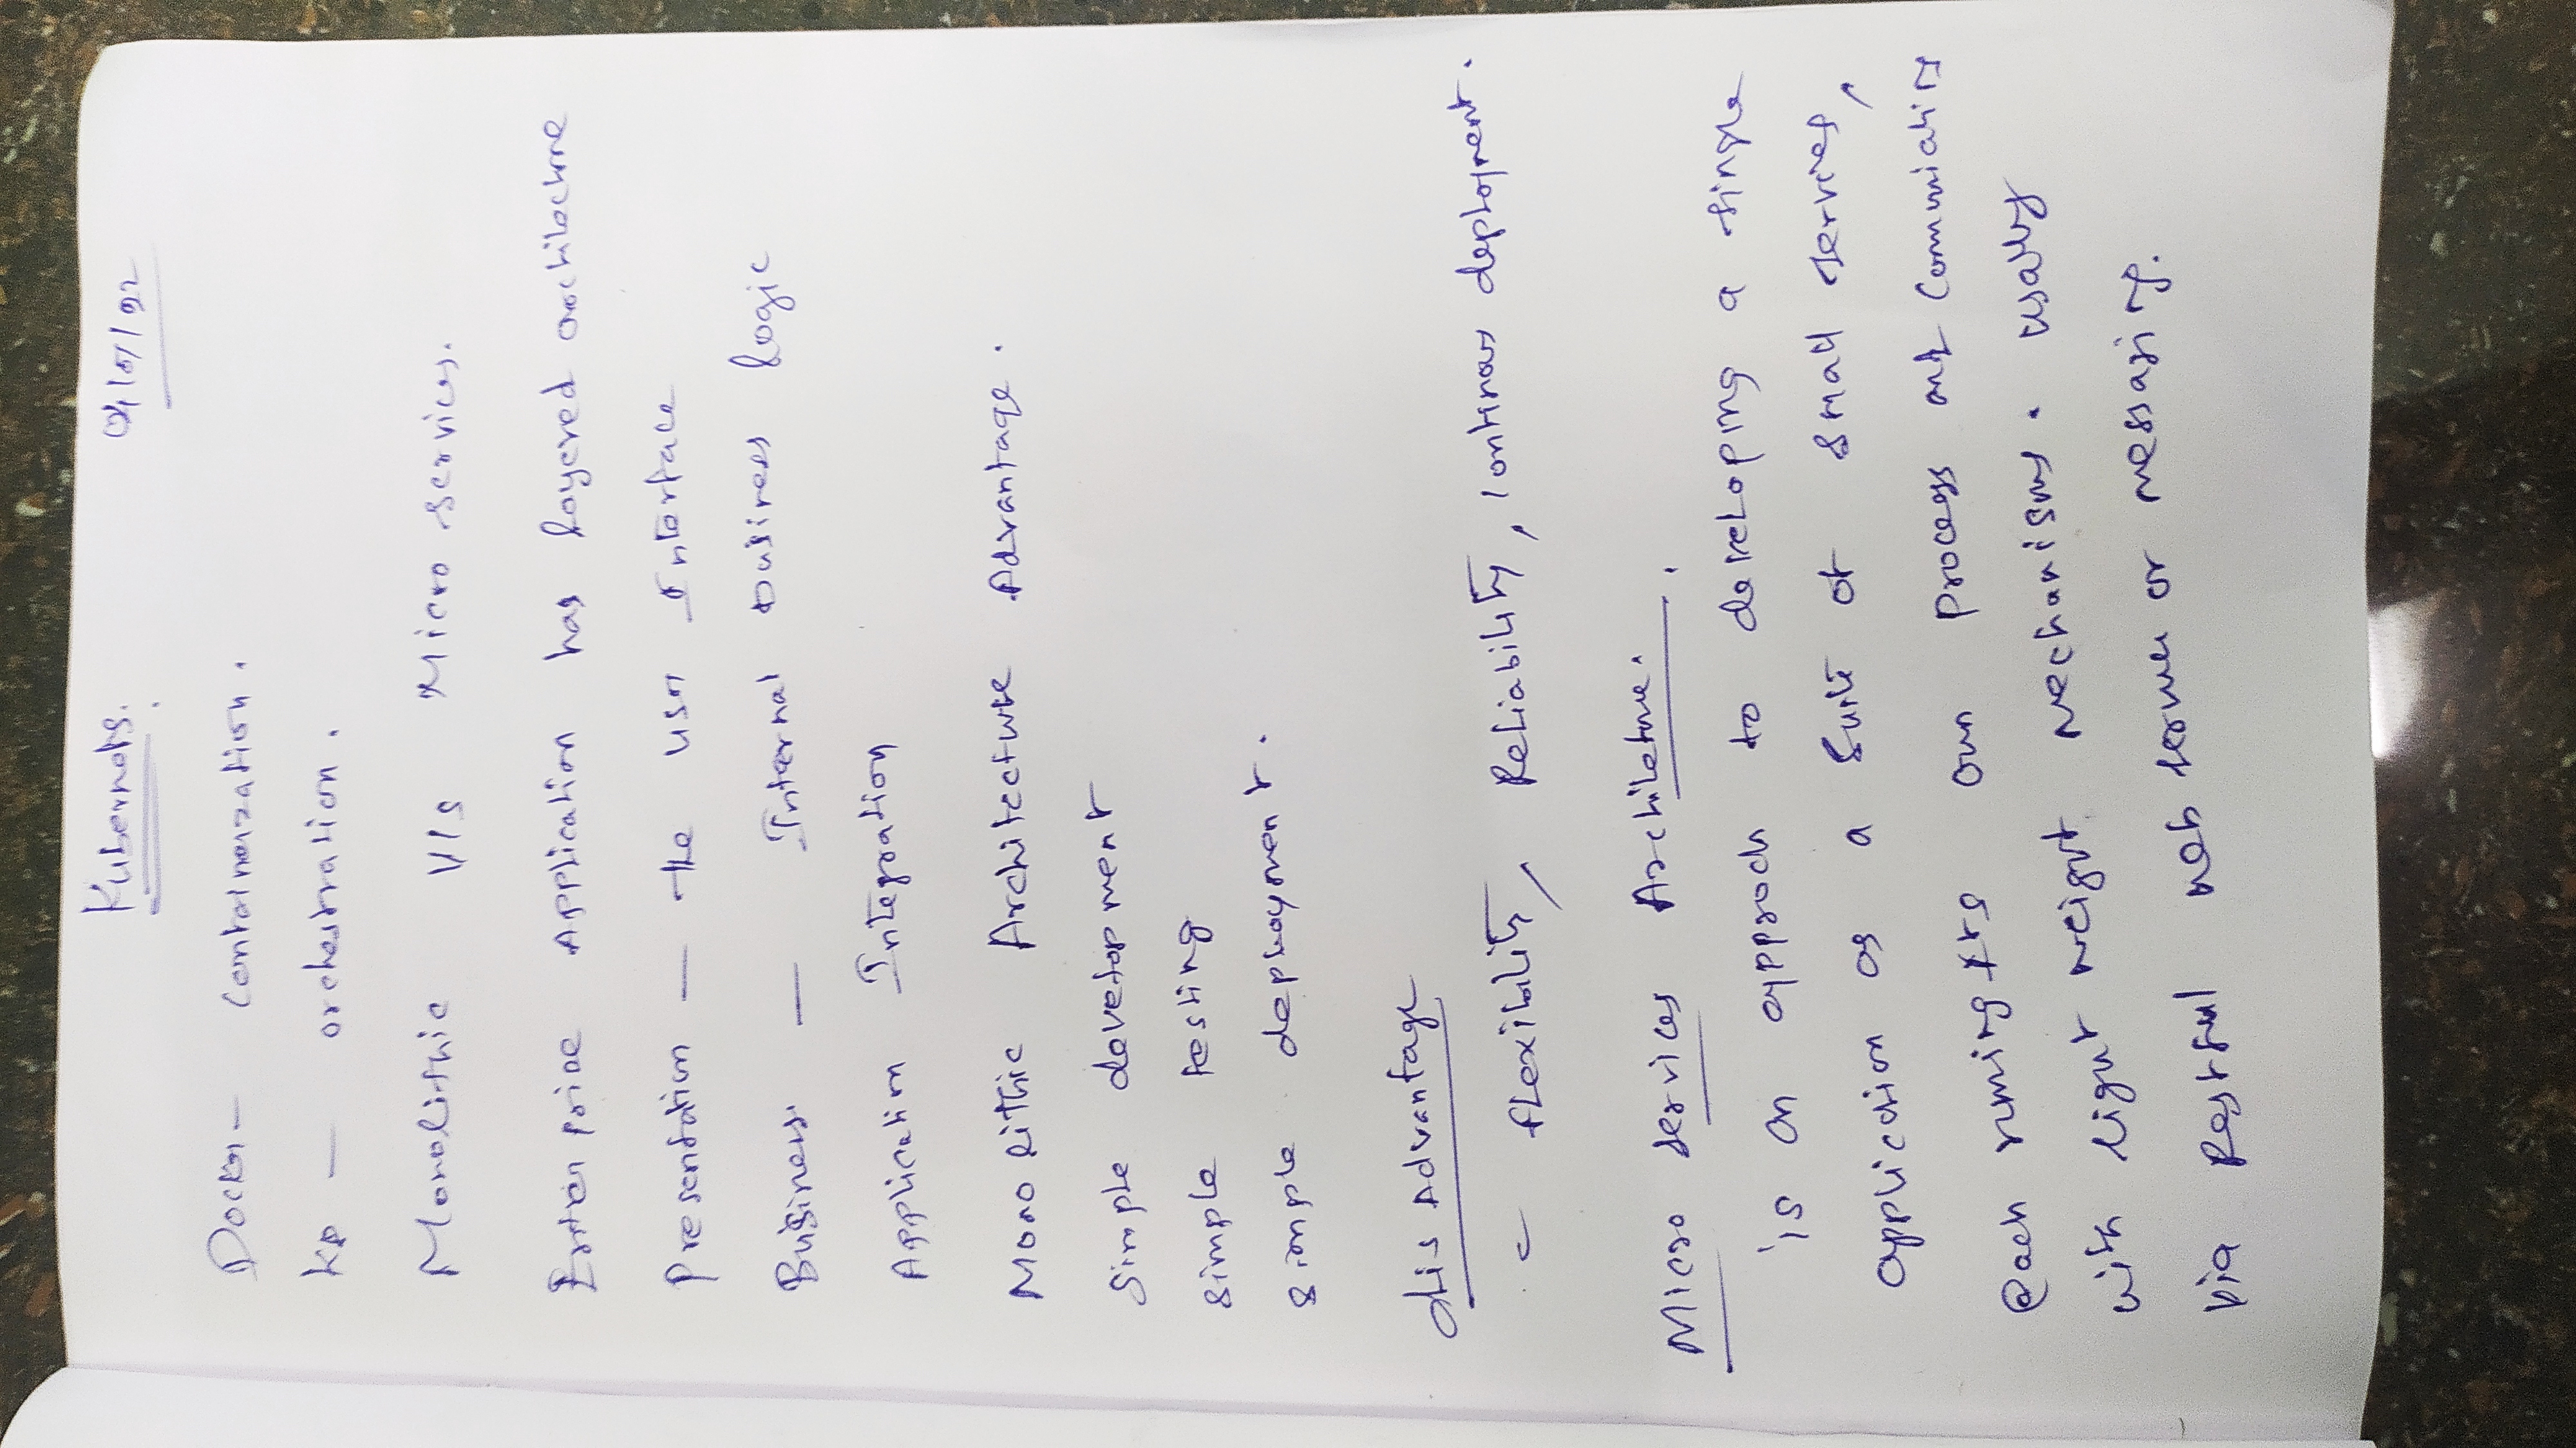 Kubernets. 04/5/22
Docker - containerzation.
K8 - orchestration.
Monolithic V/s Micro services.
Enterprise Application has layered architecture
Presentation - the user Interface
Business - Internal business logic
Application Integration
Monolithic Architecture Advantage.
Simple development
simple testing
simple deployment.
dis Advantage
- flexibility, Reliability, continous deployment.
Micro services Architeture.
is an approch to developing a single
application as a suite of small services,
each running its own process and communicating
with light weight mechanisms. usally
via Restful web or messaging.